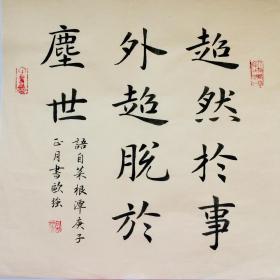 超然於事
外超脫於
塵世
語自菜根潭庚子
正月書歐強